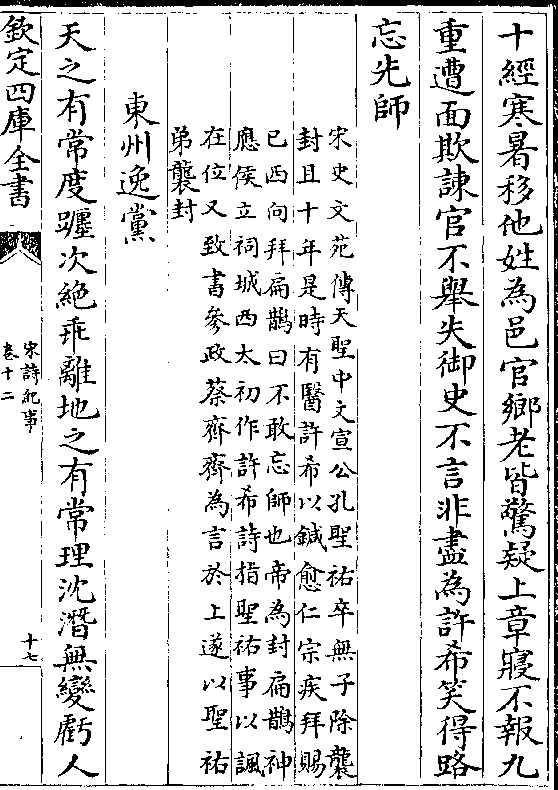 十經寒暑移他姓為邑官鄉老皆驚疑上章寢不報九
重遭面欺諫官不舉失御史不言非盡為許希笑得路
忘先師
宋史文苑傳天聖中文宣公孔聖祐卒無子除襲
封且十年是時有醫許希以鍼愈仁宗疾拜賜
已西向拜扁鵲曰不敢忘師也帝為封扁鵲神
應侯立祠城西太初作許希詩指聖祐事以諷
在位又致書參政蔡齊齊為言於上遂以聖祐
弟襲封
東州逸黨
天之有常度躔次絶乖離地之有常理沈潛無變虧人
欽定四庫全書
宋詩紀事
卷十二
十七